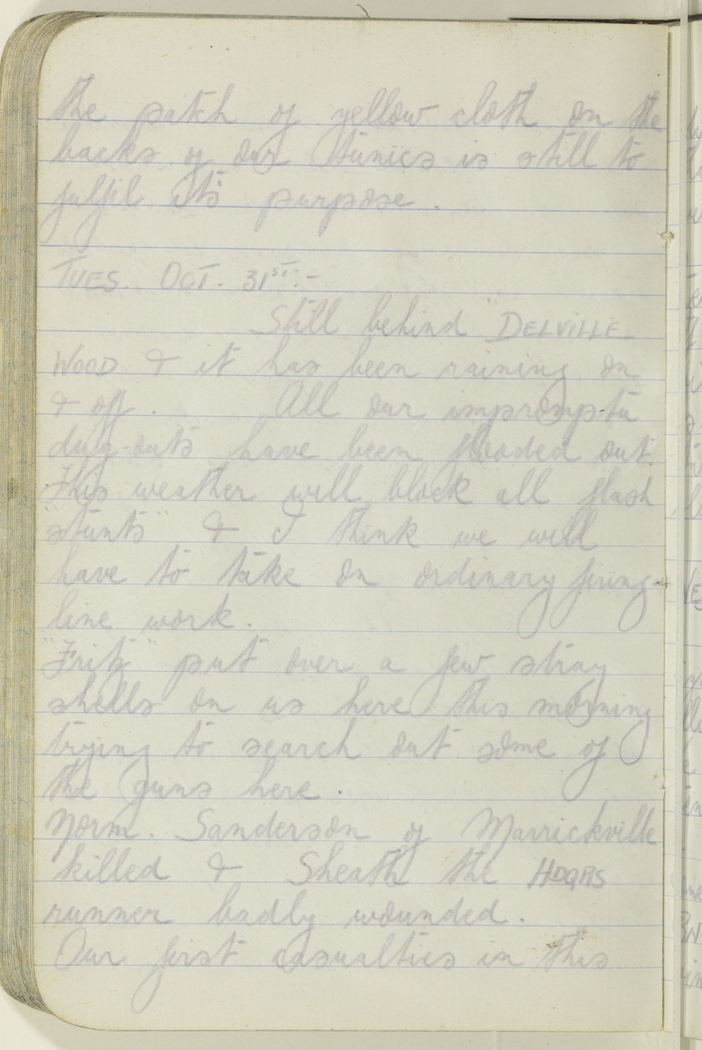 the patch of yellow cloth on the
backs of our tunics is still to
fulfil its purpose.
TUES. OCT. 31ST:-
Still behind "DELVILLE
WOOD & it has been raining on
& off. All our impromptu
dug-outs have been flooded out.
This weather will block all flash
"stunts" & I think we will
have to take on ordinary firing-
line work.
"Fritz" put over a few stray
shells on us here this morning
trying to search out some of
the guns here.
Norm. Sanderson of Marrickville
killed & Sheath the HDQRS
runner badly wounded.
Our first casualties in this